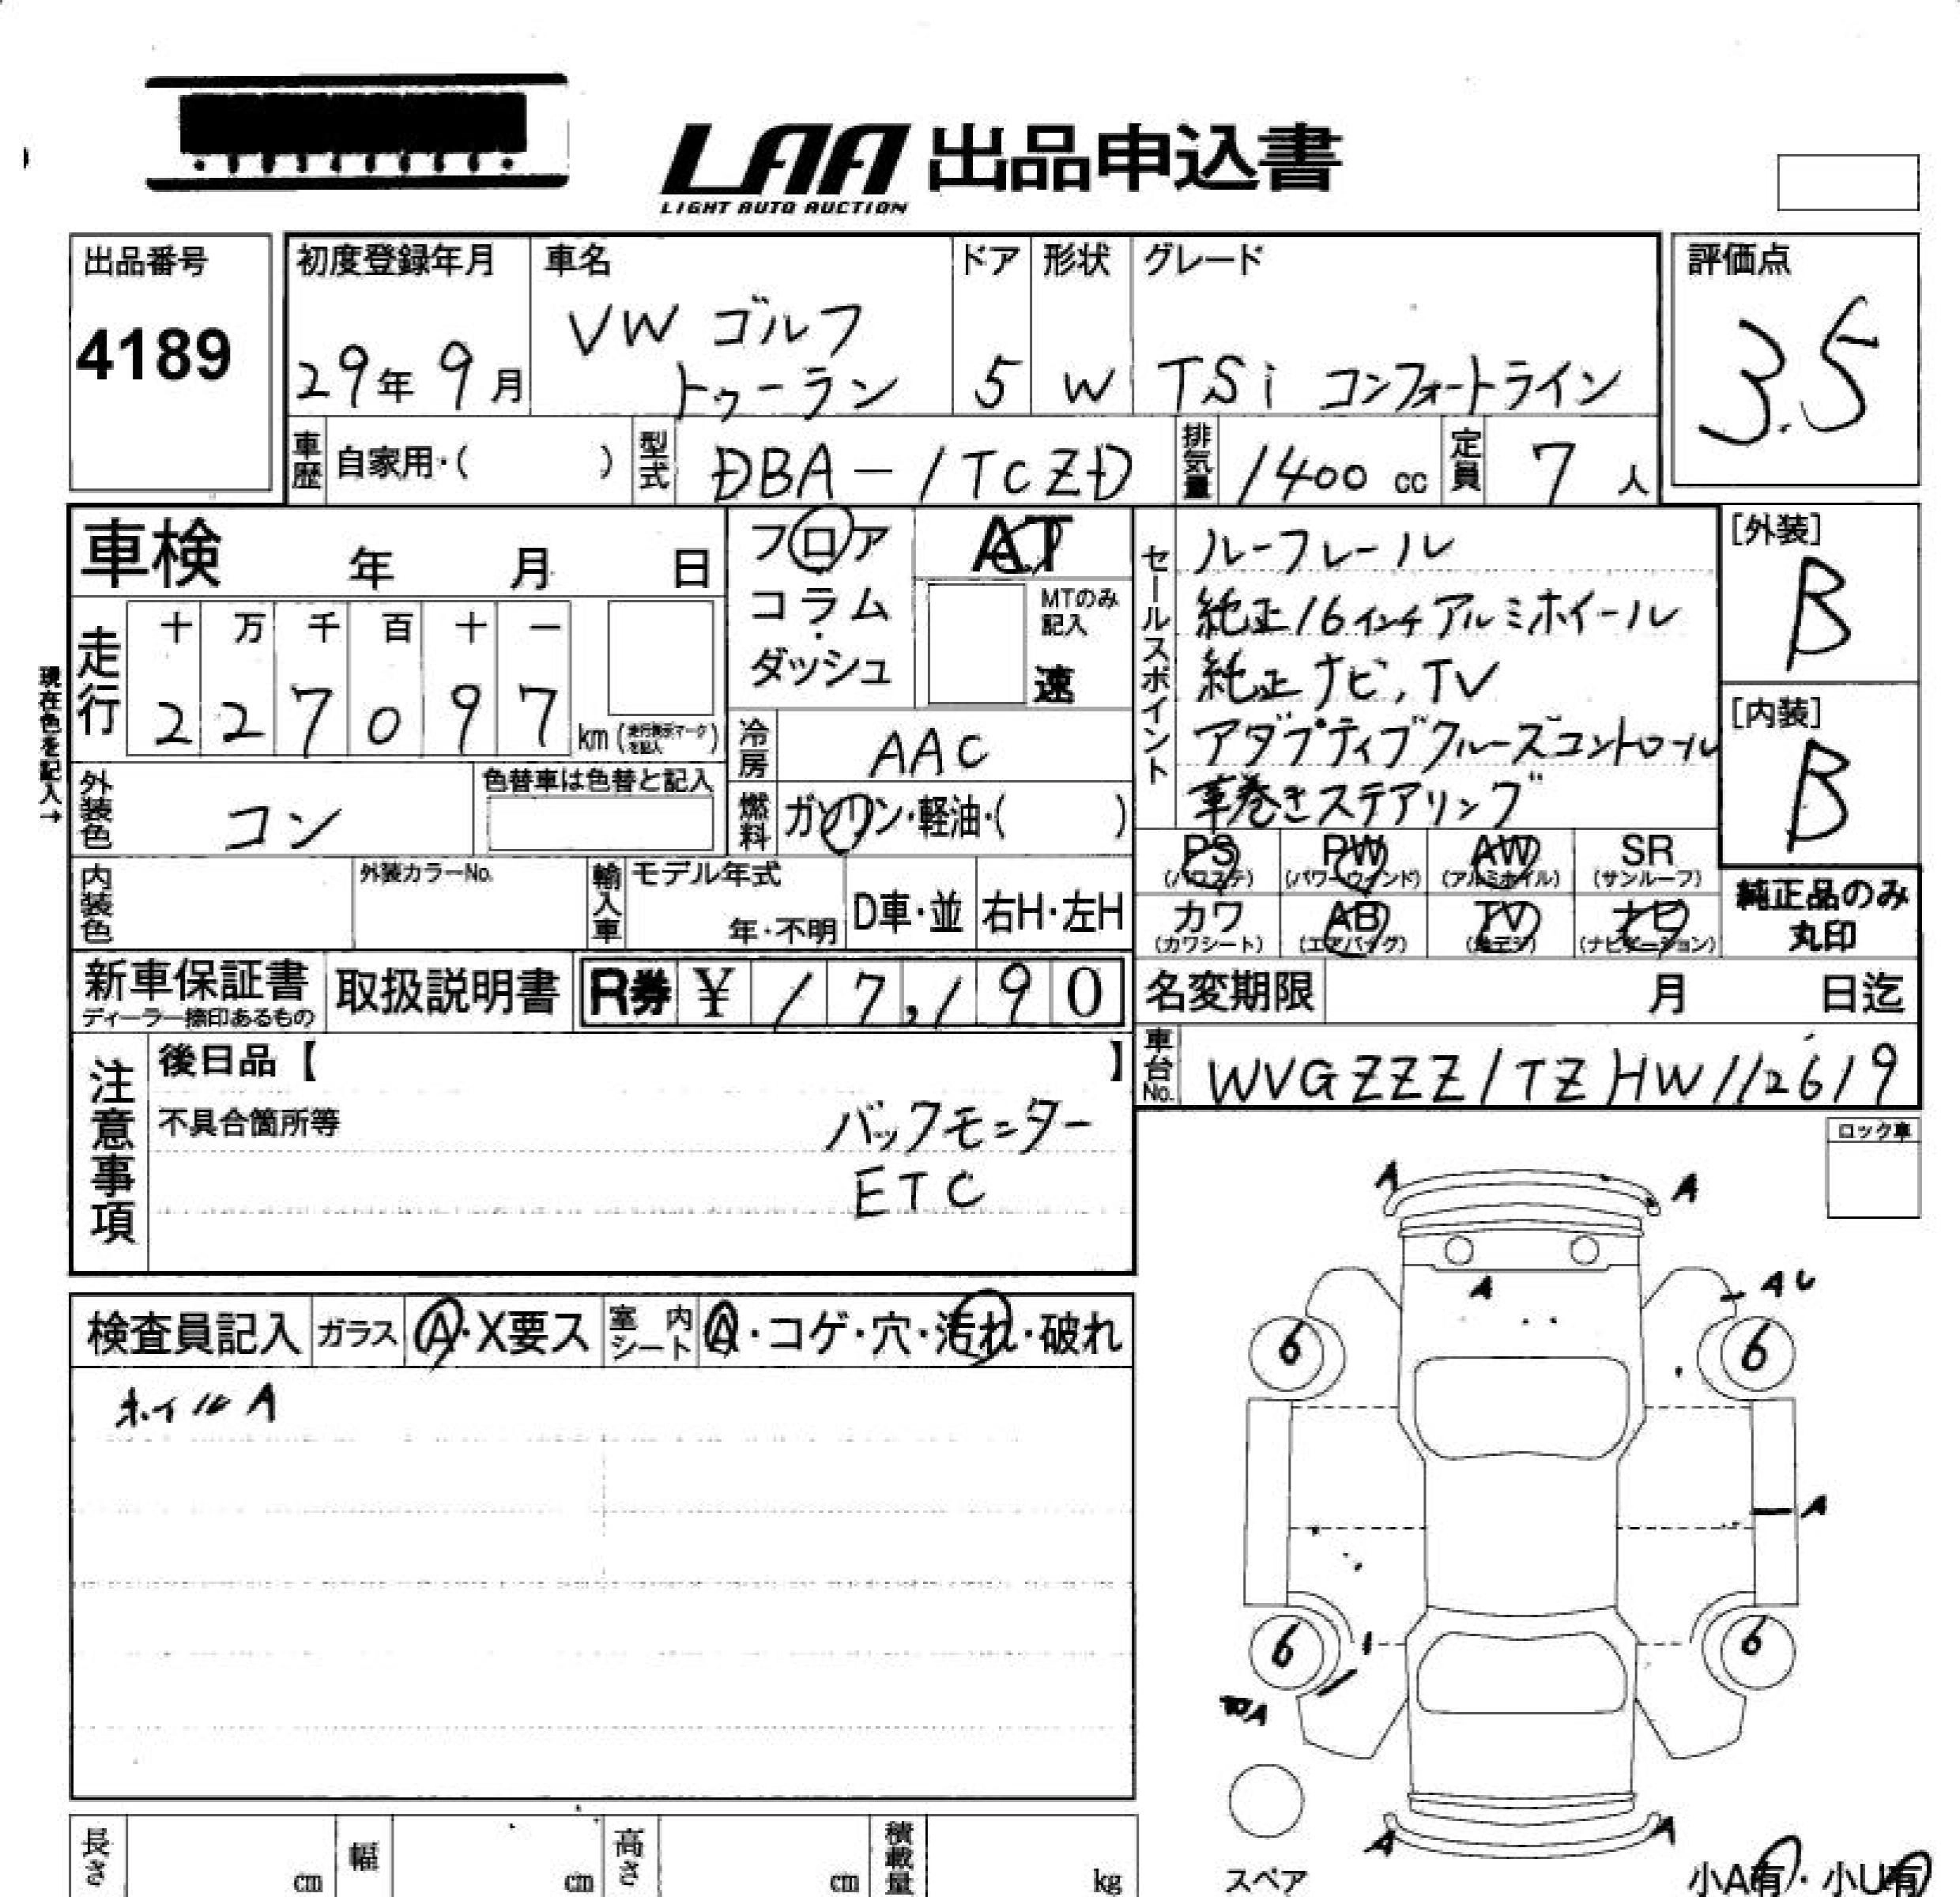 LAA 出品申込書
LIGHT AUTO AUCTION
出品番号
4189
初度登録年月
29年 9月
車名
VW ゴルフ
トゥーラン
ドア
5
形状
W
グレード
TSi コンフォートライン
評価点
3.5
車歴
自家用・( )
型式
DBA-1TCZD
排気量
1400 cc
定員
7 人
車検 年 月 日
フロア
コラム
・
ダッシュ
AT
MTのみ
記入
速
走行
十 万 千 百 十 一
2 2 7 0 9 7 km
現在色を記入→
冷房
AAC
外装色
コン
色替車は色替と記入
燃料
ガソリン・軽油・( )
内装色
外装カラーNo.
輸入車
モデル年式
年・不明
D車・並
右H・左H
セールスポイント
ルーフレール
純正16インチアルミホイール
純正ナビ,TV
アダプティブクルーズコントロール
革巻きステアリング
[外装]
B
[内装]
B
PS
(パワステ)
PW
(パワーウィンド)
AW
(アルミホイル)
SR
(サンルーフ)
カワ
(カワシート)
AB
(エアバッグ)
TV
(地デジ)
ナビ
(ナビゲーション)
純正品のみ
丸印
新車保証書
ディーラー捺印あるもの
取扱説明書
R券 ¥ 17,190
名変期限 月 日迄
車台No.
WVGZZZ1TZHW112619
注意事項
後日品【 】
不具合箇所等
バックモニター
ETC
ロック車
検査員記入
ガラス
A・X要ス
室内シート
A・コゲ・穴・汚れ・破れ
ホイルA
A
A
A
AU
6
6
A
6
6
A
A
A
スペア
小A有・小U有
長さ cm
幅 cm
高さ cm
積載量 kg